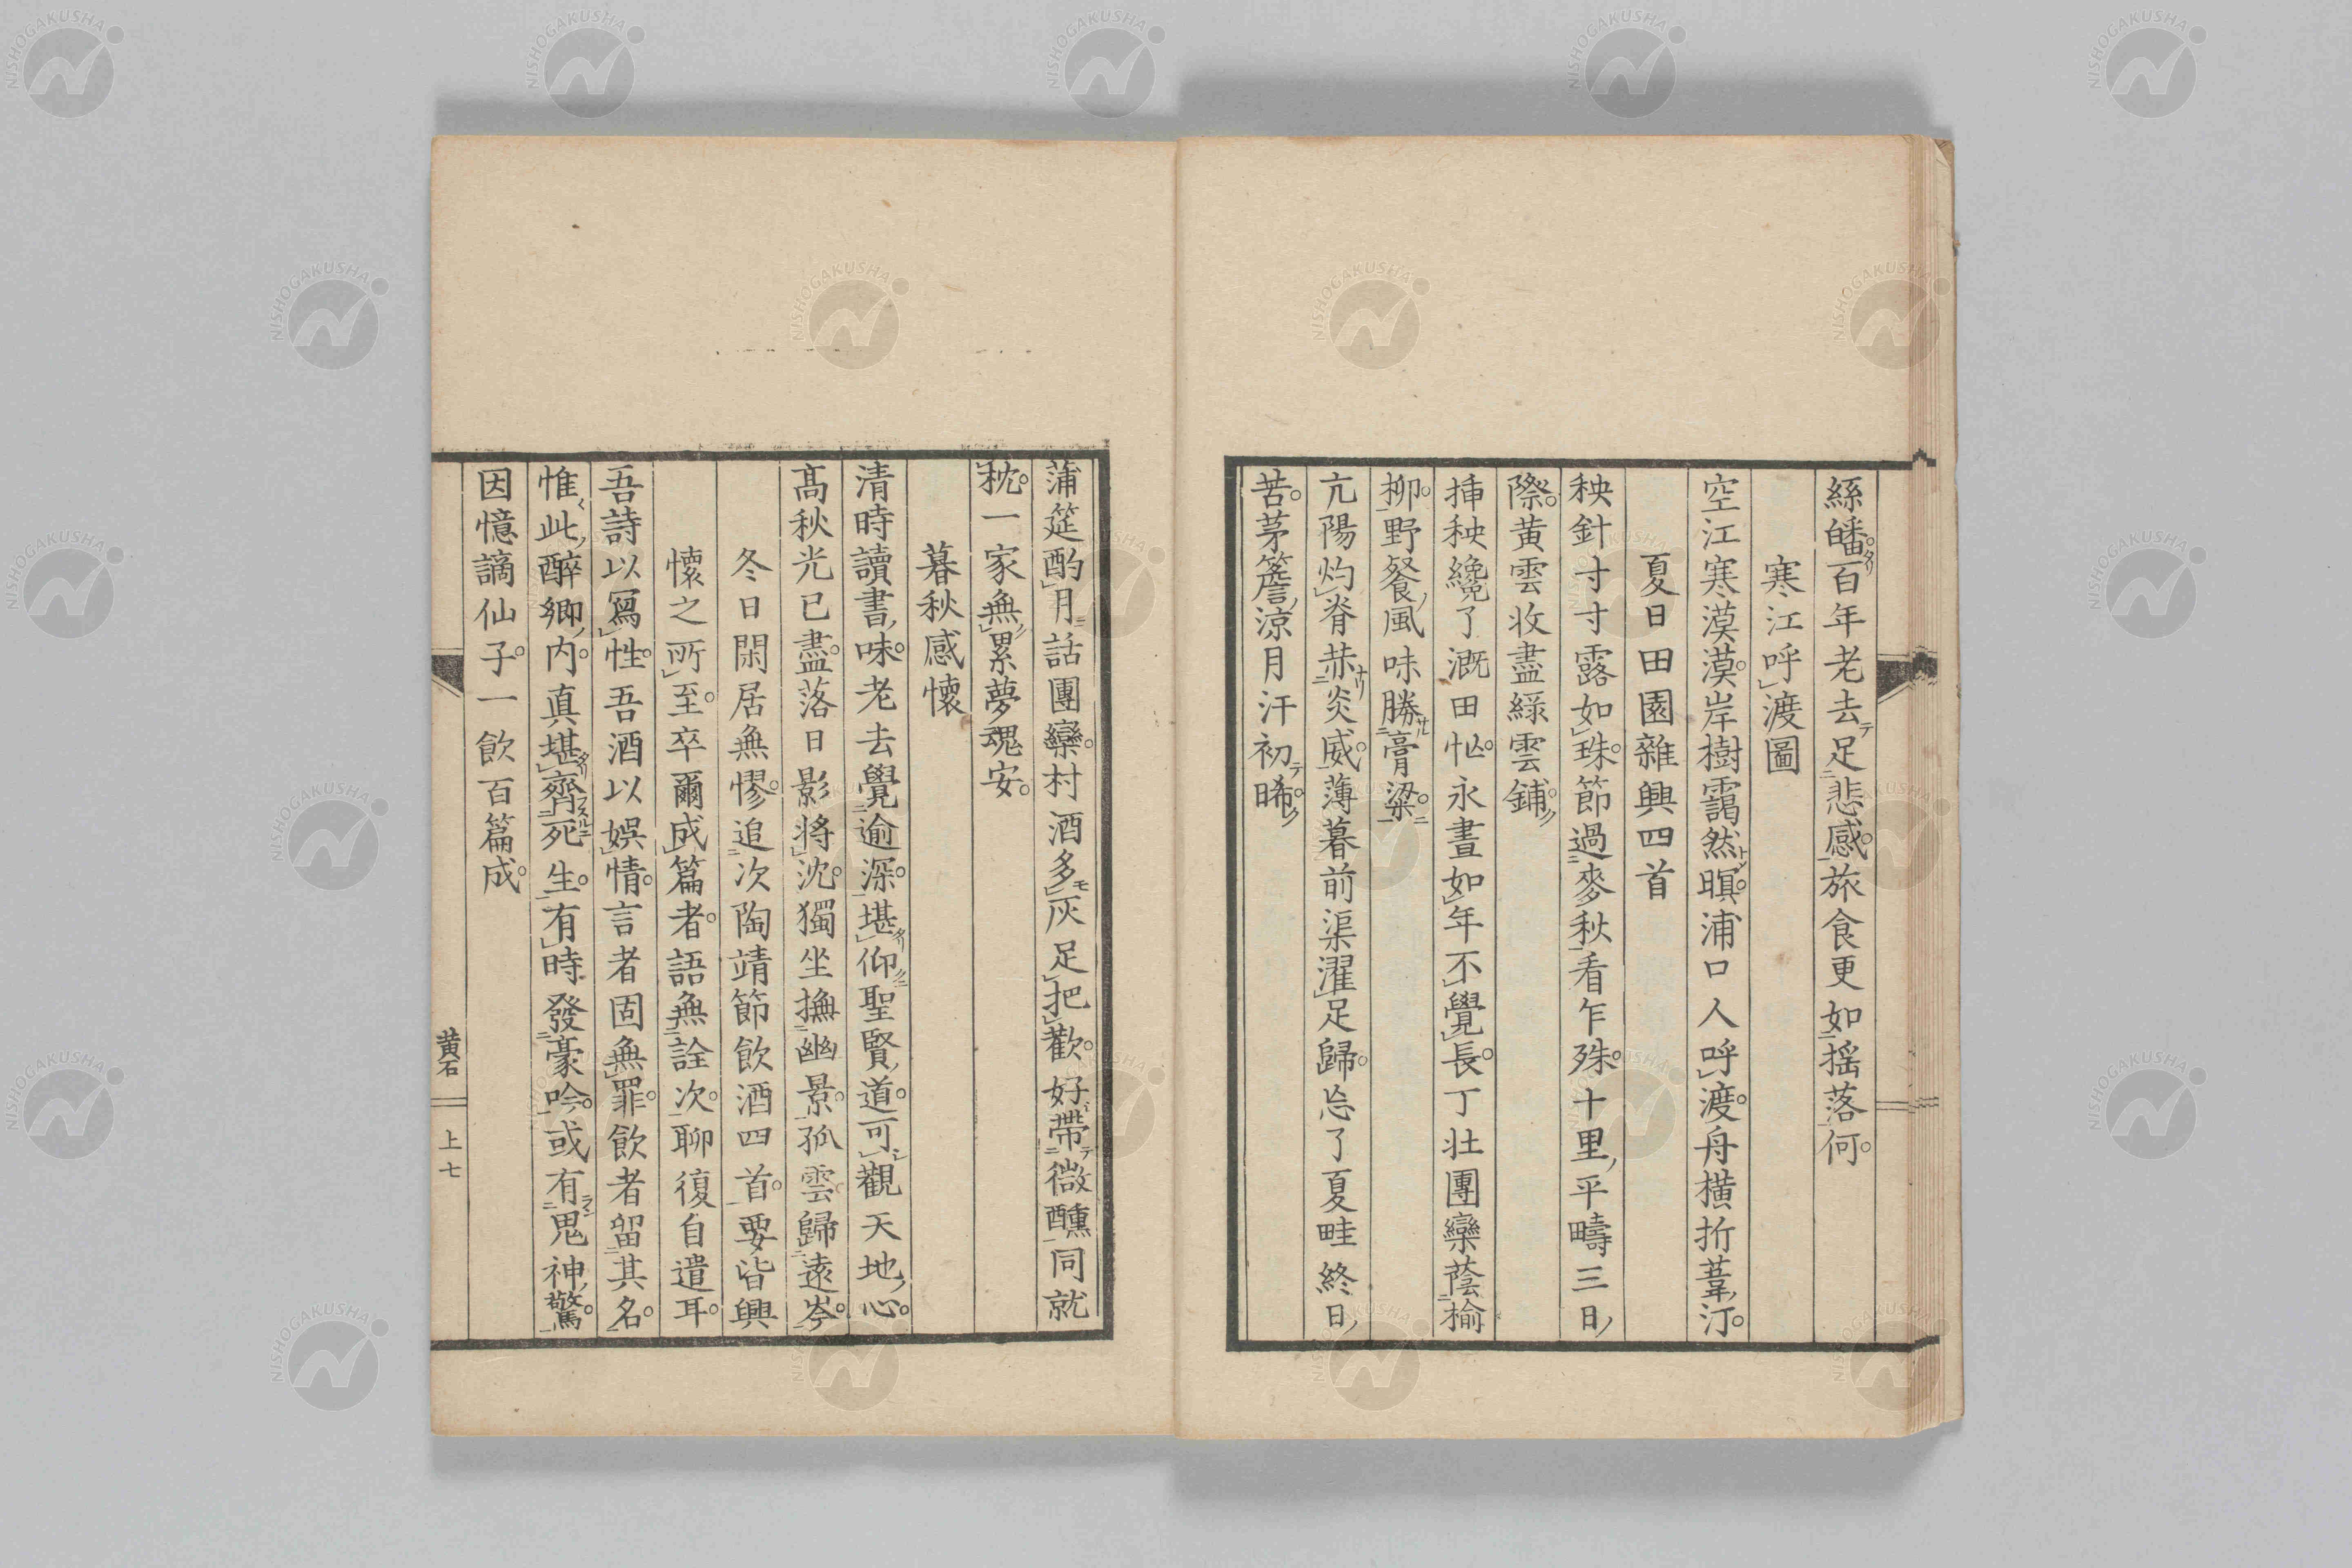 絲皤。百年老去テ足悲感。旅食更如搖落何。
寒江呼渡圖
空江寒漠漠。岸樹靄然暝。浦口人呼渡。舟橫折葦汀。
夏日田園雜興四首
秧針寸寸露如珠。節過麥秋看乍殊。十里平疇三日
際。黃雲收盡綠雲鋪。
揷秧纔了漑田忙。永晝如年不覺長。丁壯團欒蔭榆
柳。野餐風味勝膏粱。
亢陽灼脊赫炎威。薄暮前渠濯足歸。忘了夏畦終日
苦。茅簷涼月汗初晞。
蒲筵酌月話團欒。村酒多灰足把歡。好帶微醺同就
枕。一家無累夢魂安。
暮秋感懷
清時讀書味。老去覺逾深。堪仰聖賢道。可觀天地心。
高秋光已盡。落日影將沈。獨坐撫幽景。孤雲歸遠岑。
冬日閑居無憀。追次陶靖節飲酒四首。要皆興
懷之所至。卒爾成篇者。語無詮次。聊復自遣耳。
吾詩以寫性。吾酒以娛情。言者固無罪。飲者留其名。
惟此醉鄉內。真堪齊死生。有時發豪吟。或有鬼神驚。
因憶謫仙子。一飲百篇成。
黃石
上七
NISHOGAKUSHA